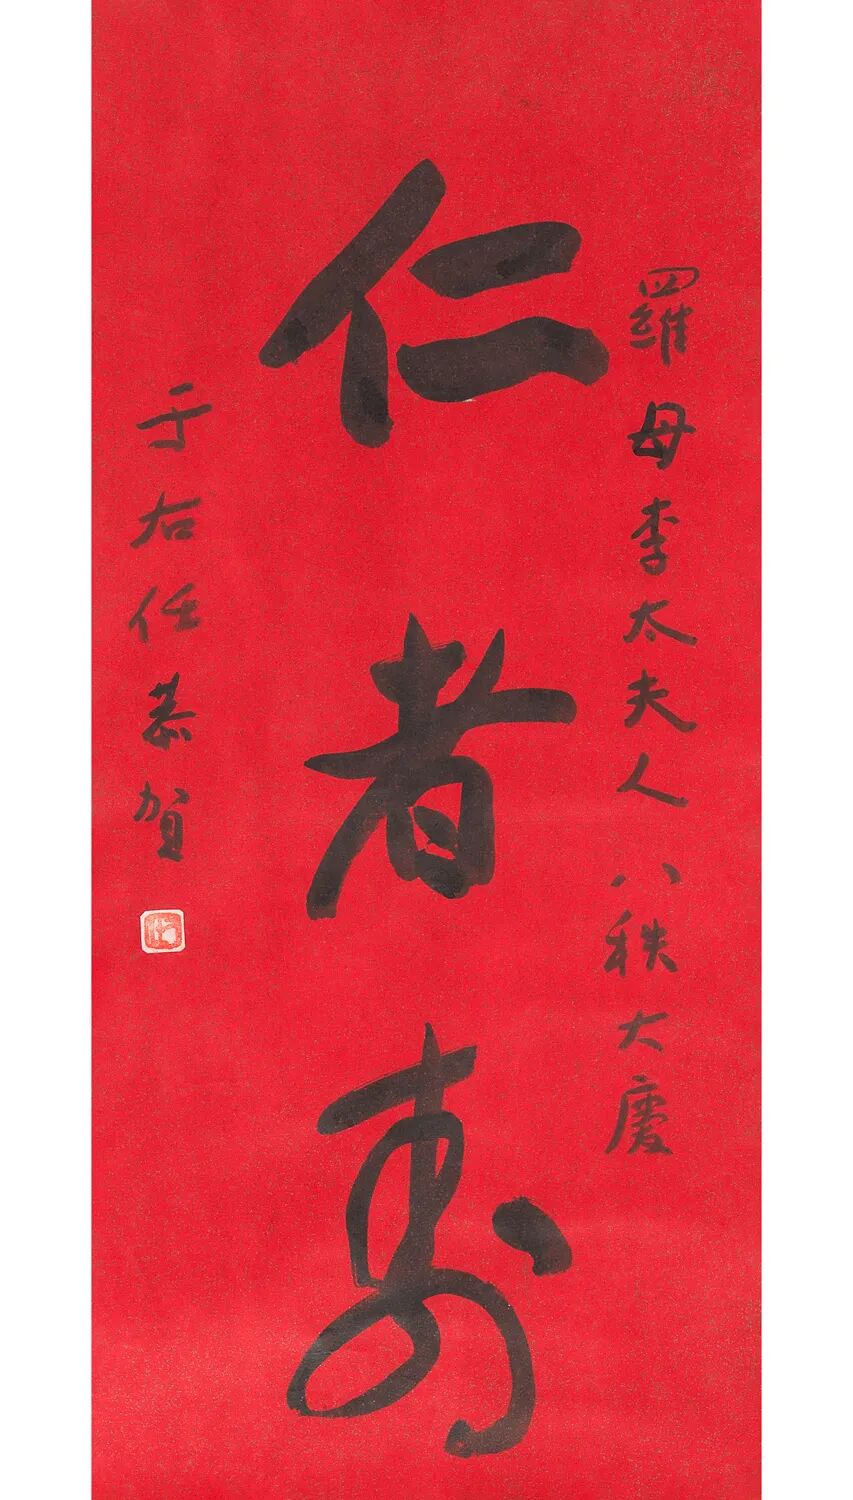 羅母李太夫人八秩大慶
仁者壽
于右任恭賀